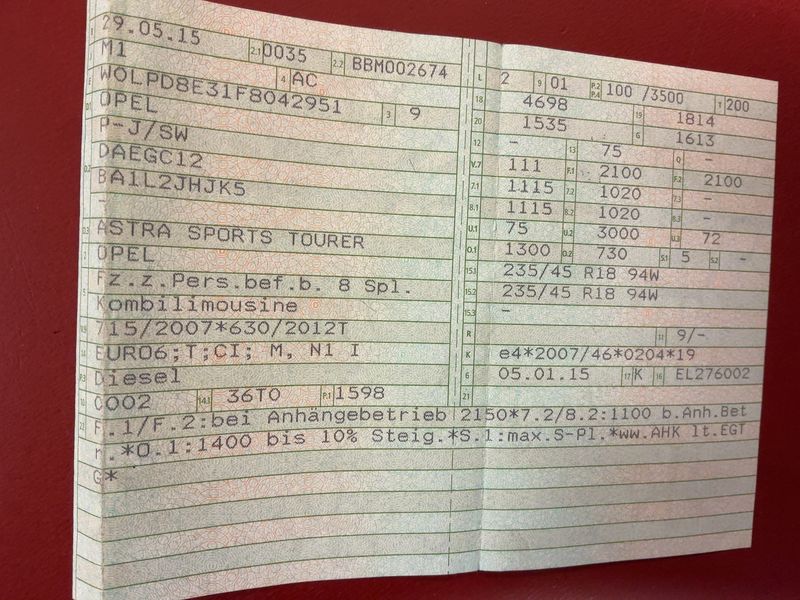 29.05.15 2.1 0035 2.2 BBM002674
M1
WOLPD8E31F8042951 4 AC
OPEL 3 9
P-J/SW
DAEGC12
BA1L2JHJK5
-
D.3 ASTRA SPORTS TOURER
2 OPEL
5 Fz.z.Pers.bef.b. 8 Spl.
Kombilimousine
V.9 715/2007*630/2012T
14 EURO6;T;CI; M, N1 I
P.3 Diesel
10 0002 14.1 36T0 P.1 1598
L 2 9 01 P.2 P.4 100 /3500 T 200
18 4698 19 1814
20 1535 G 1613
12 - 13 75 Q -
V.7 111 F.1 2100 F.2 2100
7.1 1115 7.2 1020 7.3 -
8.1 1115 8.2 1020 8.3 -
U.1 75 U.2 3000 U.3 72
O.1 1300 O.2 730 S.1 5 S.2 -
15.1 235/45 R18 94W
15.2 235/45 R18 94W
15.3 -
R 11 9/-
K e4*2007/46*0204*19
6 05.01.15 17 K 16 EL276002
21
22 F.1/F.2:bei Anhängebetrieb 2150*7.2/8.2:1100 b.Anh.Bet
r.*O.1:1400 bis 10% Steig.*S.1:max.S-Pl.*ww.AHK lt.EGT
G*